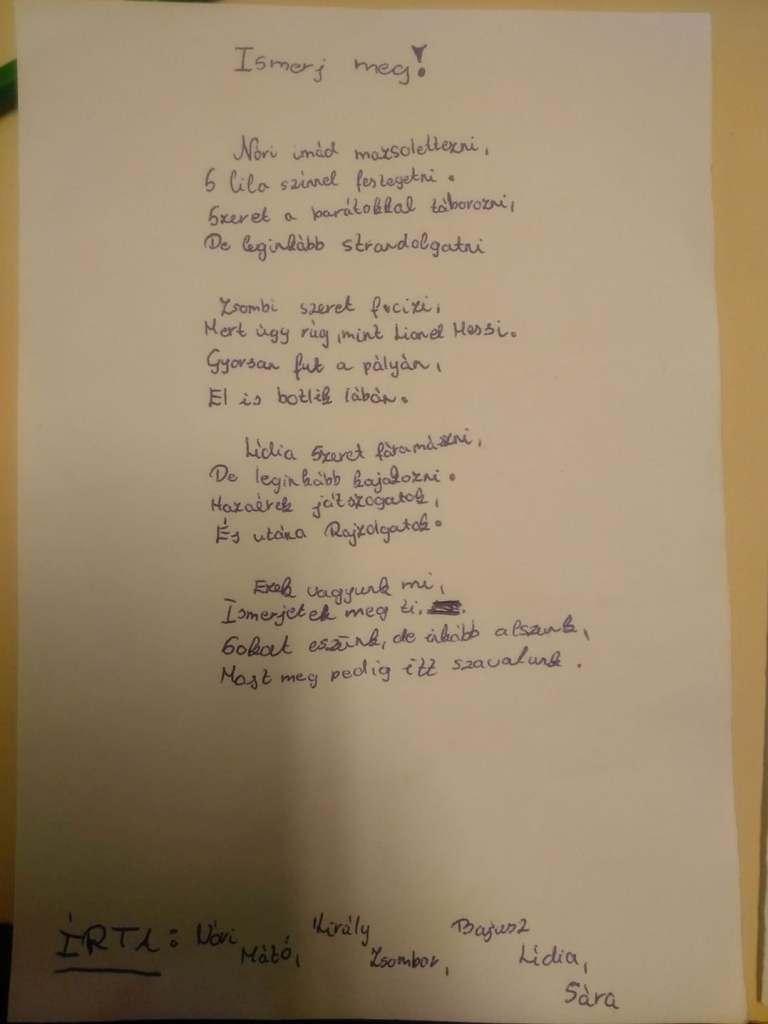 Ismerj meg!
Nóri imád mazsolettezni,
S lila színnel festegetni.
Szeret a barátokkal táborozni,
De leginkább strandolgatni
Zsombi szeret focizi,
Mert úgy rúg, mint Lionel Messi.
Gyorsan fut a pályán,
El is botlik lábán.
Lídia szeret fáramászni,
De leginkább kajakozni.
Hazaérek játszogatok,
És utána Rajzolgatok.
Ezek vagyunk mi,
Ismerjetek meg ti,
Sokat eszünk, de ikább alszunk,
Most meg pedig itt szavalunk.
ÍRTA: Nóri Mátó, Király Zsombor, Bajusz Lídia, Sára